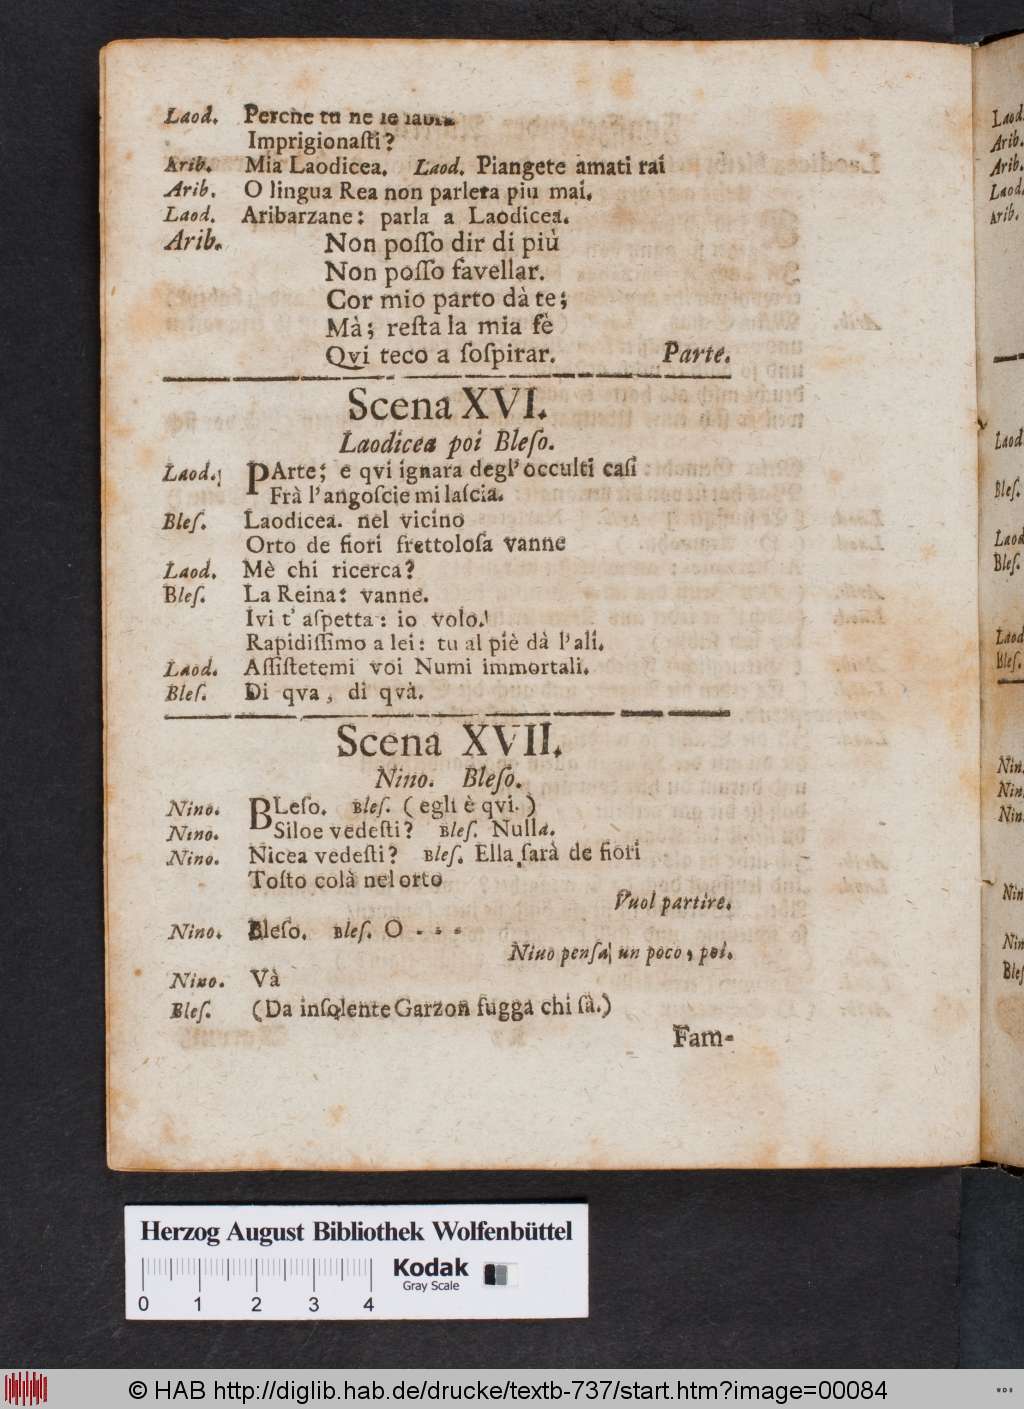 Laod. Perche tu ne le labra
Imprigionaſti?
Arib. Mia Laodicea. Laod. Piangete amati rai
Arib. O lingua Rea non parlera piu mai.
Laod. Aribarzane: parla a Laodicea.
Arib. Non poſſo dir di più
Non poſſo favellar.
Cor mio parto dà te;
Mà; reſta la mia fè
Qvi teco a ſoſpirar. Parte.
Scena XVI.
Laodicea poi Bleſo.
Laod. PArte; e qvi ignara degl' occulti caſi
Frà l'angoſcie mi laſcia.
Bleſ. Laodicea. nel vicino
Orto de fiori frettoloſa vanne
Laod. Mè chi ricerca?
Bleſ. La Reina: vanne.
Ivi t' aſpetta: io volo.
Rapidiſſimo a lei: tu al piè dà l'ali.
Laod. Aſſiſtetemi voi Numi immortali.
Bleſ. Di qva, di qvà.
Scena XVII.
Nino. Bleſo.
Nino. BLeſo. Bleſ. (egli è qvi.)
Nino. Siloe vedeſti? Bleſ. Nulla.
Nino. Nicea vedeſti? Bleſ. Ella ſarà de fiori
Toſto colà nel orto
Vuol partire.
Nino. Bleſo. Bleſ. O - - -
Nino penſa un poco, poi.
Nino. Và
Bleſ. (Da inſolente Garzon fugga chi sà.)
Fam-
Laod.
Arib.
Arib.
Laod.
Arib.
Laod.
Bleſ.
Laod
Bleſ.
Laod
Bleſ.
Nin.
Nin.
Nin.
Nin
Nin
Bleſ
Herzog August Bibliothek Wolfenbüttel
Kodak
Gray Scale
0 1 2 3 4
© HAB http://diglib.hab.de/drucke/textb-737/start.htm?image=00084